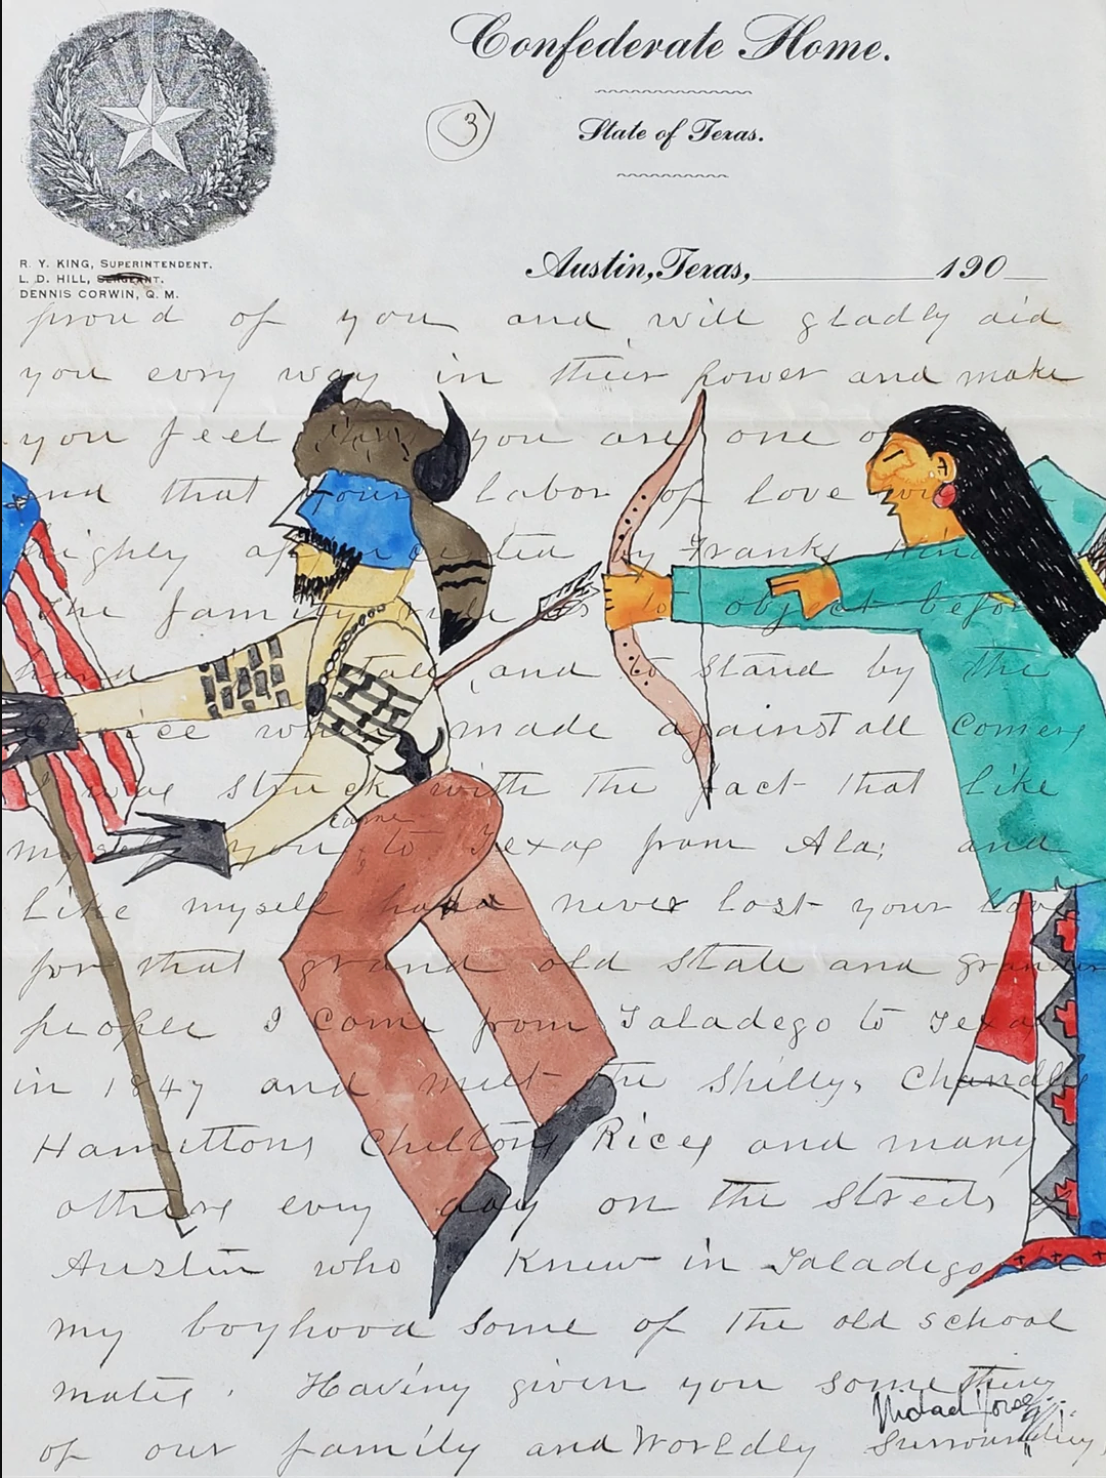 Confederate Home.
3
State of Texas.
Austin, Texas, 190
R. Y. KING, SUPERINTENDENT.
L. D. HILL, SERGEANT.
DENNIS CORWIN, Q. M.
proud of you and will gladly aid
you evry way in their power and make
you feel you are one o
and that your labor of love
highly by Franks
The family rule is to object befor
hand tall, and to stand by the
made against all comers
I was struck with the fact that like
came
myself you to Texas from Ala; and
Like myself never lost your love
for that grand old State and grander
people I come from Taladego to Texas
in 1847 and meet the Shellys Chandlers
Hamittons Cheltons Rices and many
others evry day on the Streets of
Austin who I Knew in Taladego
my boyhood some of the old school
mates. Having given you some thing
of our family and Worldly Surrounding
Michael Horse